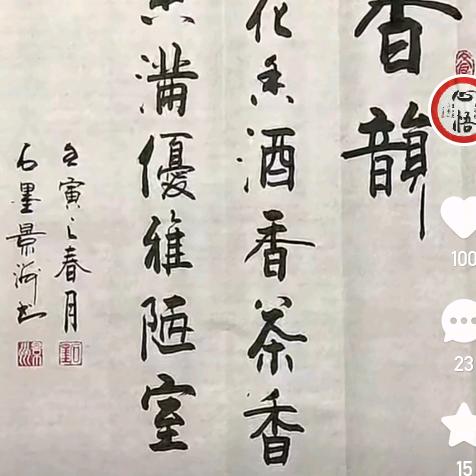 香韻
花香酒香茶香
滿優雅陋室
壬寅之春月
石墨景
心悟
100
23
15